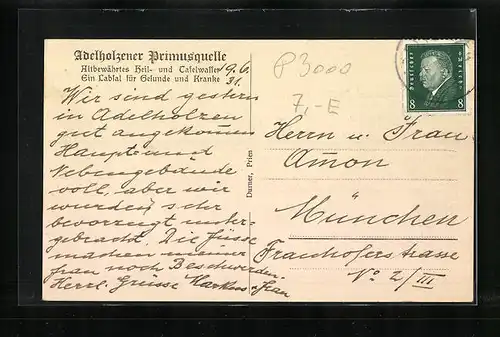 Adelholzener Primusquelle
Altbewährtes Heil- und Tafelwasser
Ein Labsal für Gesunde und Kranke
19.6.
31.
Wir sind gestern
in Adelholzen
gut angekommen
Haupt- und
Nebengebäude
voll, aber wir
wurden sehr
bevorzugt unter-
gebracht. Die Füsse
machen meiner
Frau noch Beschwerden.
Herzl. Grüsse
Frau
Durner, Prien
P3000
7,-E
Deutsches Reich
8 8
Herrn u. Frau
Amon
München
Fraunhoferstrasse
No 2/III